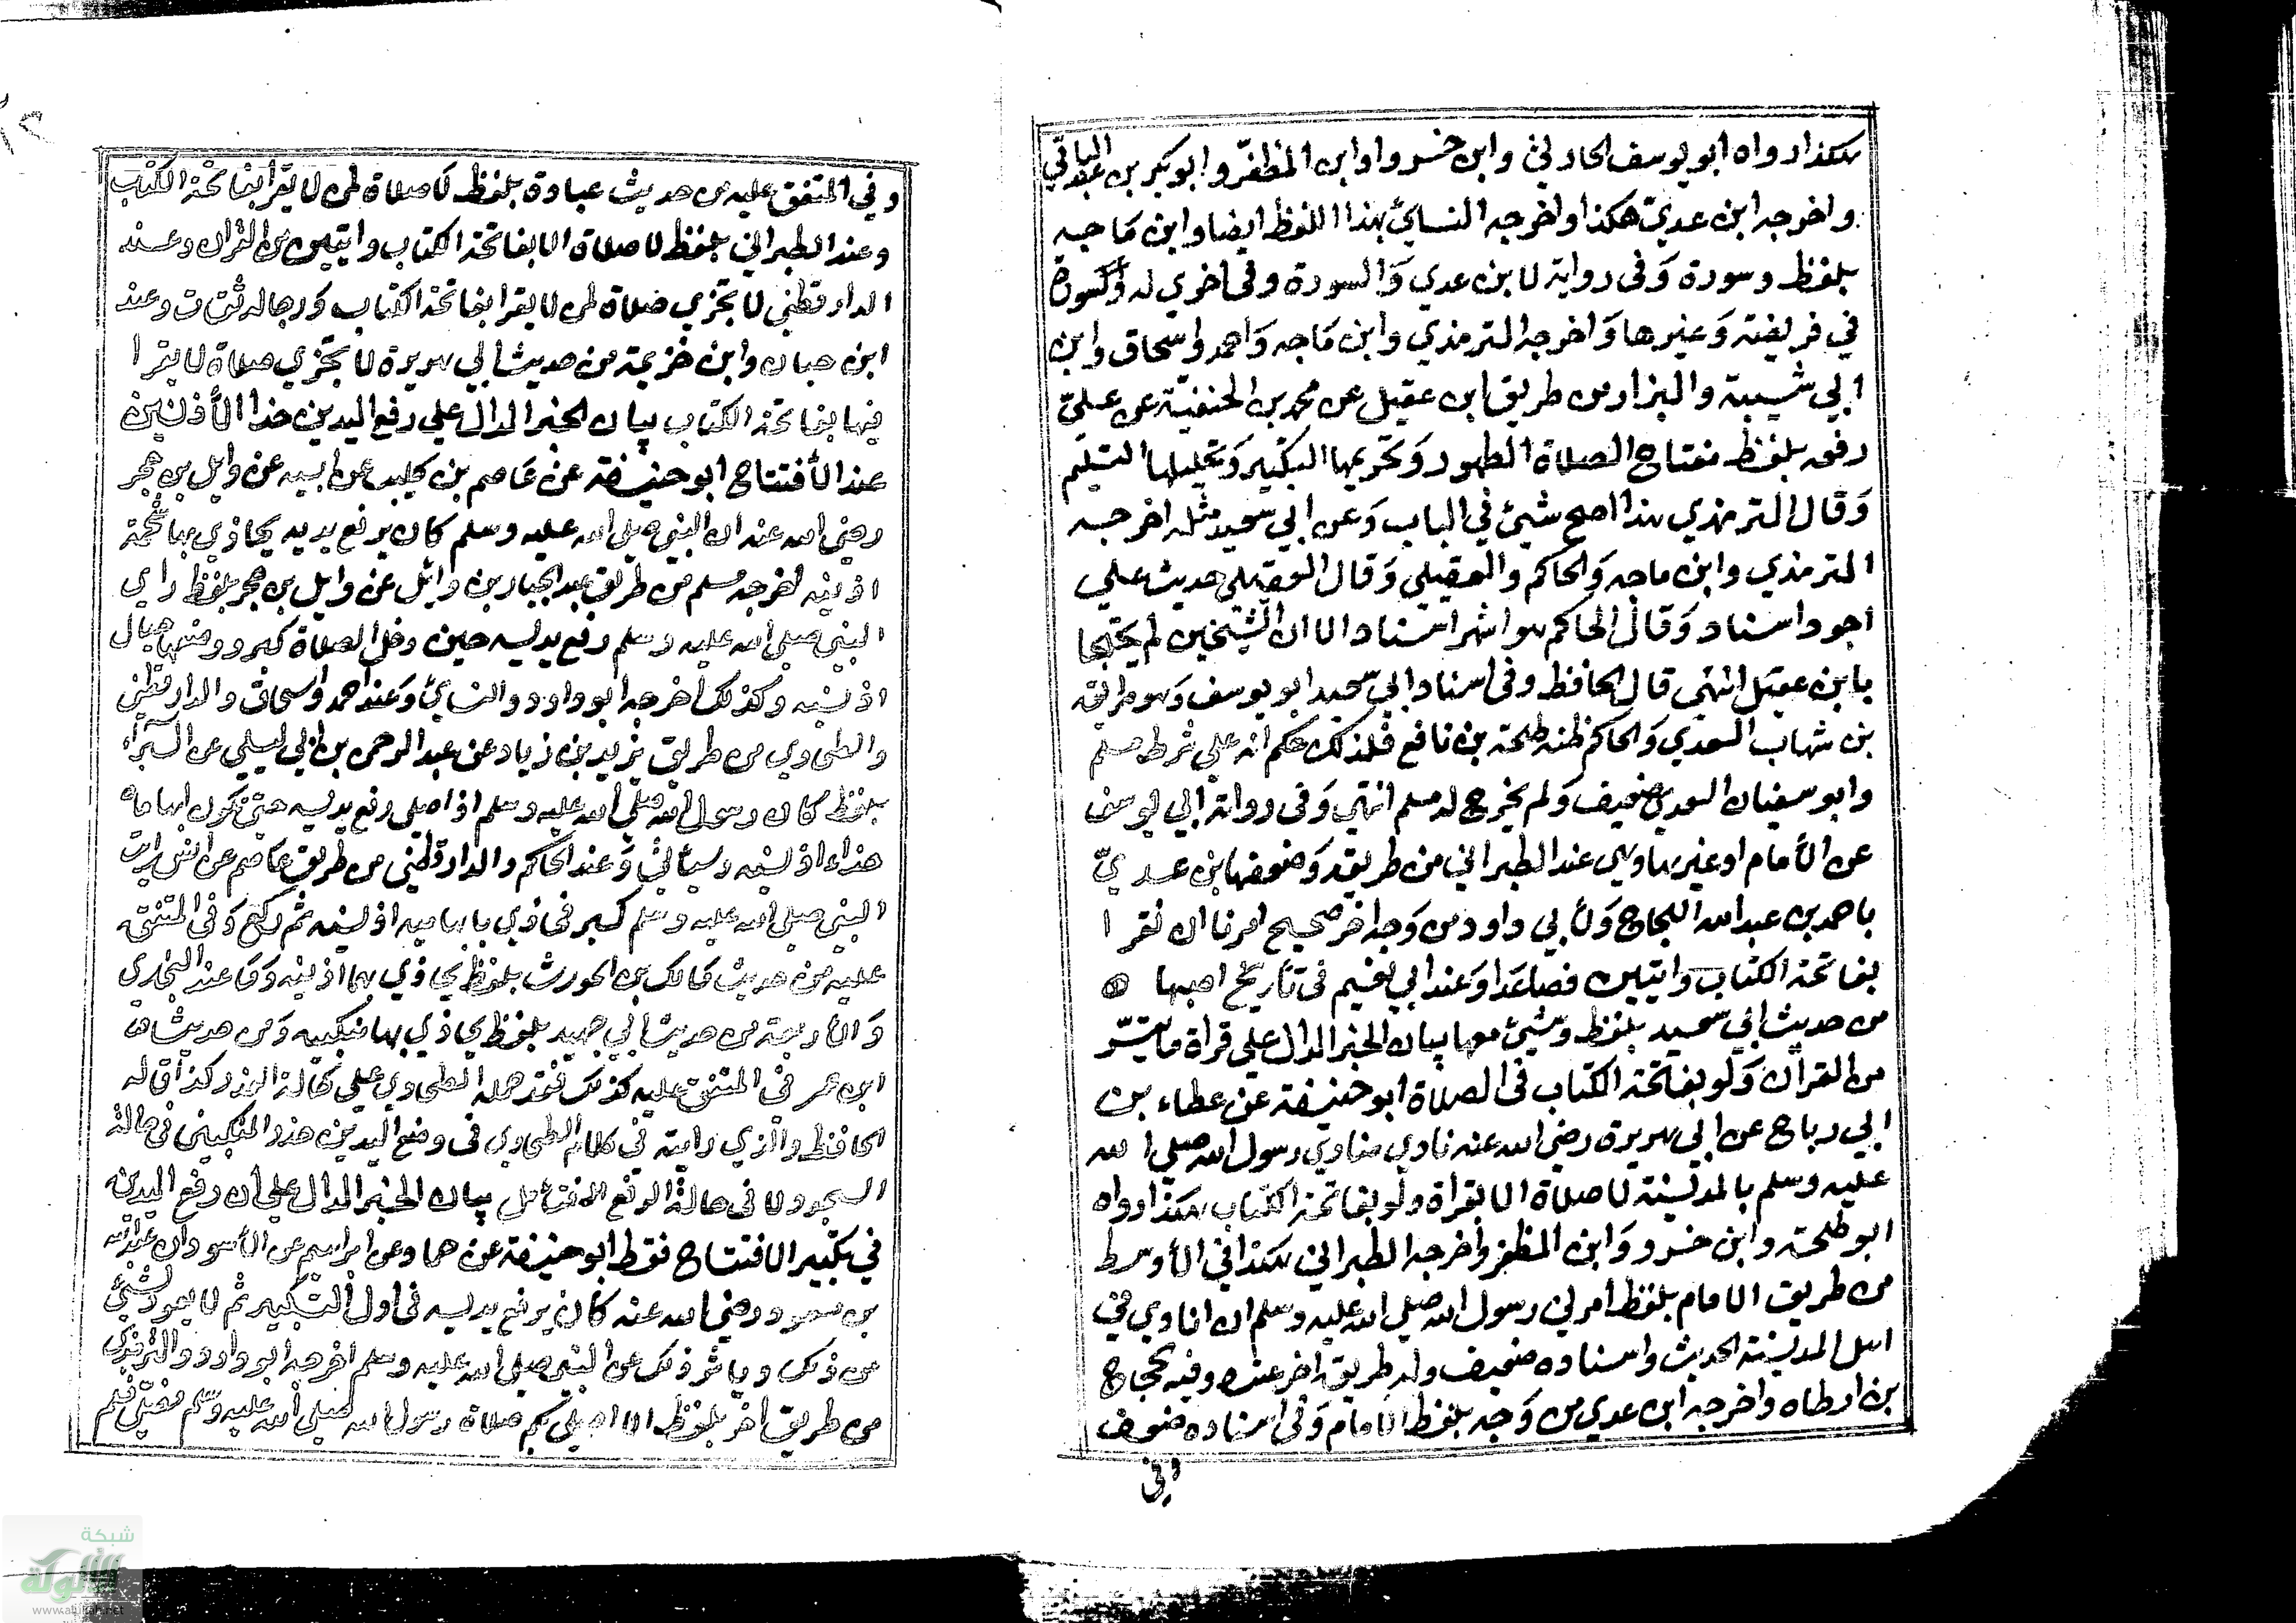 هكذا رواه ابو يوسف الحارثي وابن خسروا وابن المظفر وابو بكر بن عبد الباقي
واخرجه ابن عدي هكذا واخرجه النسائي بهذا اللفظ ايضا وابن ماجه
بلفظ وسورة وفى رواية لابن عدي والسورة وفى اخري له وسورة
في فريضة وغيرها واخرجه الترمذي وابن ماجه واحمد واسحاق وابن
ابي شيبة والبزار من طريق ابن عقيل عن محمد بن الحنفية عن علي
رفعه بلفظ مفتاح الصلاة الطهور وتحريمها التكبير وتحليلها التسليم
وقال الترمذي هذا اصح شيئ في الباب وعن ابي سعيد مثله اخرجه
الترمذي وابن ماجه والحاكم والعقيلي وقال العقيلي حديث علي
اجود اسناد وقال الحاكم هو اشهر اسناد الا ان الشيخين لم يحتجا
بابن عقيل انتهي قال الحافظ وفى اسناد ابي سعيد ابو يوسف وهو طريف
بن شهاب السعدي والحاكم ظنه طلحة بن نافع فلذلك حكم انه علي شرط مسلم
وابو سفيان السعدي ضعيف ولم يخرج له مسلم انتهي وفى رواية ابي يوسف
عن الأمام او غيرها وهي عند الطبراني من طريقه وضعفها ابن عدي
باحمد بن عبد الله اللجاج ولأبي داود من وجه اخر صحيح امرنا ان نقرا
بفاتحة الكتاب وايتين فصاعدا وعند ابي نعيم فى تأريخ اصبها ن
من حديث ابي سعيد بلفظ وشيئ معها بيان الخبر الدال علي قراة ما تيسر
من القرأن ولو بفاتحة الكتاب فى الصلاة ابو حنيفة عن عطاء بن
ابي رباح عن ابي هريرة رضي الله عنه نادي منادي رسول الله صلي الله
عليه وسلم بالمدينة لا صلاة الا بقراة ولو بفاتحة الكتاب هكذا رواه
ابو طلحة وابن خسرو وابن المظفر واخرجه الطبراني هكذا في الأوسط
من طريق الامام بلفظ امرني رسول الله صلي الله عليه وسلم ان انادي في
اهل المدينة الحديث واسناده ضعيف وله طريق اخر عنده وفيه حجاج
بن ارطاه واخرجه ابن عدي من وجه بلفظ الامام وفى اسناده ضعف
وفي
وفي المتفق عليه من حديث عبادة بلفظ لا صلاة لمن لا يقرا بفاتحة الكتاب
وعند الطبراني بلفظ لا صلاة الا بفاتحة الكتاب وايتين من القران وعند
الدارقطني لا تجزي صلاة لمن لا يقرا بفاتحة الكتاب ورجاله ثقات وعند
ابن حبان وابن خزيمة من حديث ابي هريرة لا تجزي صلاة لا يقرا
فيها بفاتحة الكتاب بيان الخبر الدال علي رفع اليدين حذا الأذنين
عند الأفتتاح ابو حنيفة عن عاصم بن كليب عن ابيه عن وايل بن حجر
رضي الله عنه ان النبي صلي الله عليه وسلم كان يرفع يديه يحاذي بهما شحمة
اذنيه اخرجه مسلم من طريق عبد الجبار بن وائل عن وايل بن حجر بلفظ راي
النبي صلي الله عليه وسلم رفع يديه حين دخل الصلاة كبر ووصفهما حيال
اذنيه وكذلك اخرجه ابو داود والنسايئ وعند احمد واسحاق والدارقطني
والطحاوي من طريق يزيد بن زياد عن عبد الرحمن بن ابي ليلي عن البراء
بلفظ كان رسول الله صلي الله عليه وسلم اذا صلي رفع يديه حتي تكون ابهاماه
حذاء اذنيه وسيأتي وعند الحاكم والدارقطني من طريق عاصم عن انس رايت
النبي صلي الله عليه وسلم كبر فحاذي بابهاميه اذنيه ثم ركع وفى المتفق
عليه من حديث مالك بن الحويرث بلفظ يحاذي بهما اذنيه وما عند البخاري
والأربعة من حديث ابي حميد بلفظ يحاذي بهما منكبيه ومن حديث
ابن عمر في المتفق عليه كذلك فقد حمله الطحاوي علي حالة العذر كذا قاله
الحافظ والذي رايته في كلام الطحاوي فى وضع اليدين حذو المنكبين فى حالة
السجود لا فى حالة الرفع للافتتاح بيان الخبر الدال علي أن رفع اليدين
في تكبير الافتتاح فقط ابو حنيفة عن حماد عن ابراهيم عن الأسود ان عبد الله
بن مسعود رضي الله عنه كان يرفع يديه فى اول التكبير ثم لا يعود لشيئ
من ذلك ويأثر ذلك عن النبي صلي الله عليه وسلم اخرجه ابو داود والترمذي
من طريق اخر بلفظ الا اصلي بكم صلاة رسول الله صلي الله عليه وسلم فصلي فلم
شبكة
الألوكة
www.alukah.net